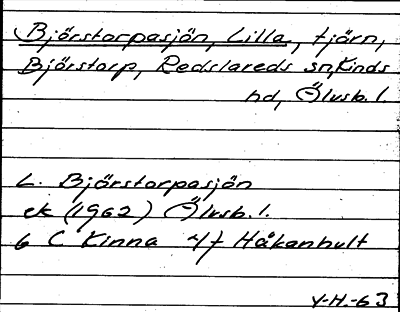 Björstorpasjön, Lilla, tjärn,
Björstorp, Redslareds sn, Kinds
hd, Älvsb. l.
L. Björstorpasjön
ek (1962) Älvsb. l.
6 C Kinna 4f Håkanhult
Y-H.-63